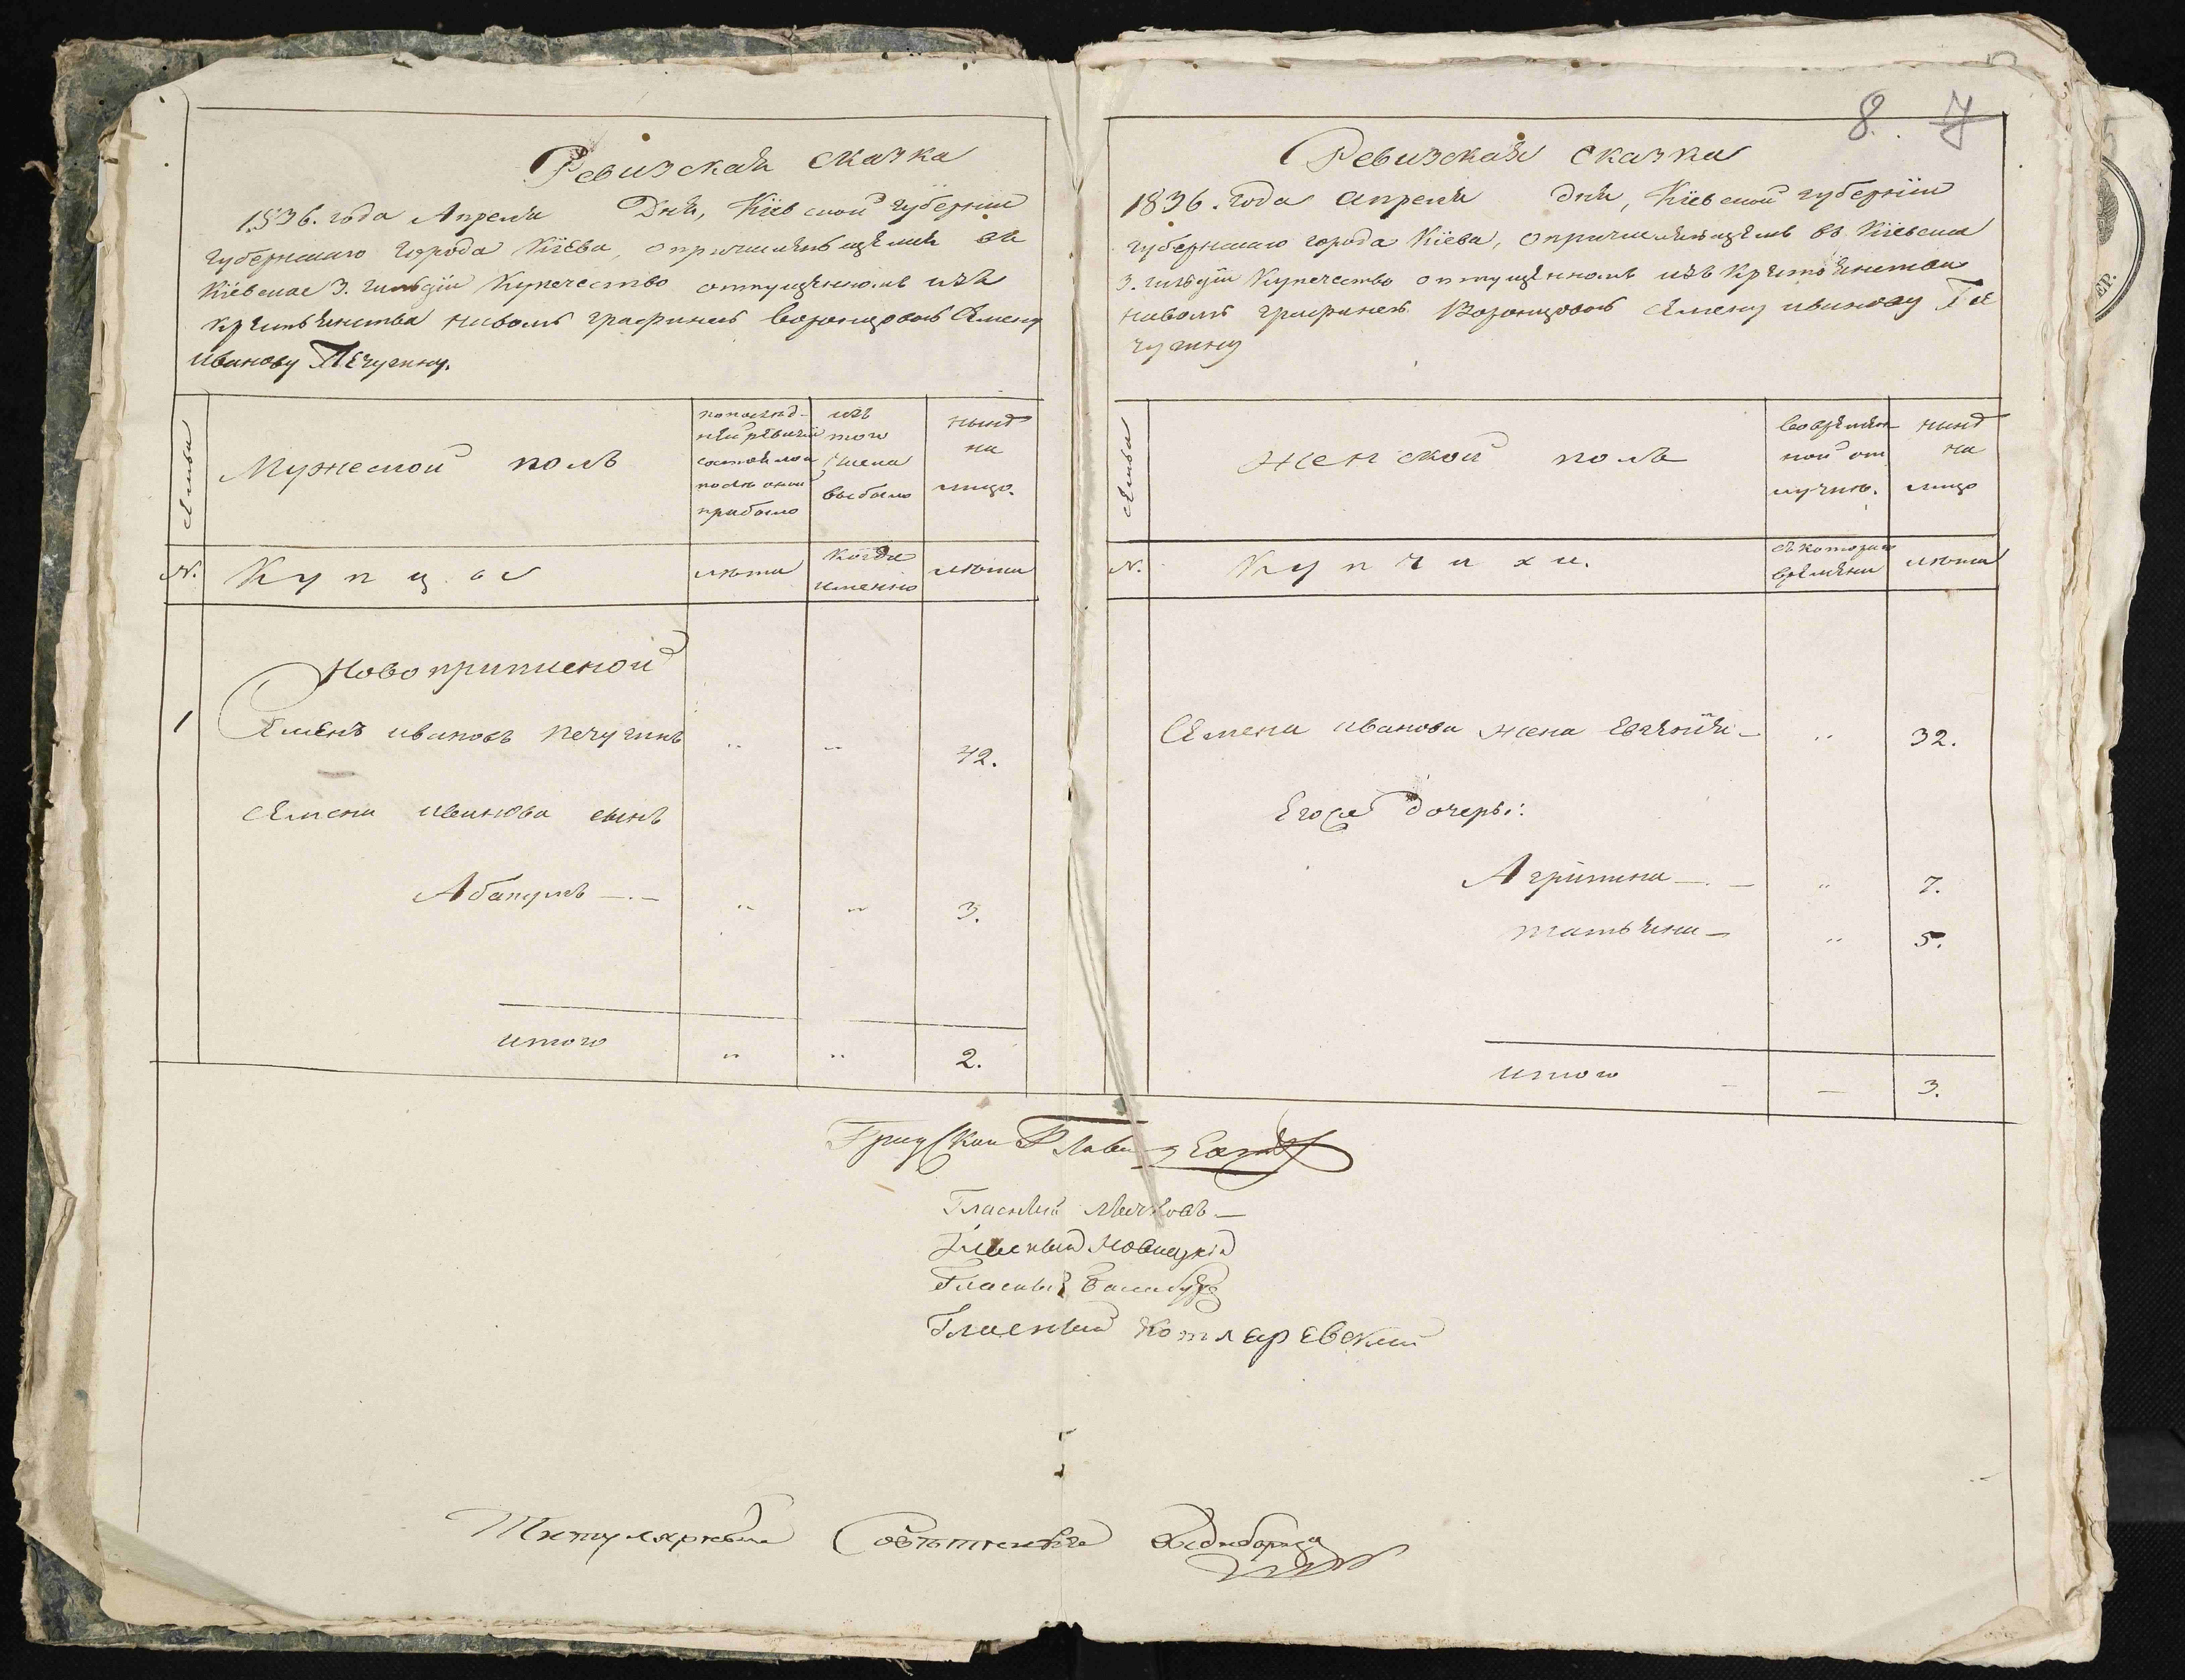 8. 7
Ревизская сказка
1836. года Апреля Дня, Кіевской губерніи
губернскаго города Кіева, о причисляющемся въ
Кіевское 3. гильдіи Купечество отпущенномъ изъ
крестьянства графинею Воронцовою Семену
Иванову Печугину.
Семьи
Мужеской полъ
по последней ревизіи состояло и после оной прибыло
изъ того числа выбыло
ныне на лицо.
N.
Купцы
лета
когда именно
лета
Новоприписной
1 Семенъ Ивановъ Печугинъ " " 42.
Семена Иванова сынъ
Абакумъ " " 3.
итого " " 2.
Ревизская сказка
1836. года Апреля дня, Кіевской губерніи
губернскаго города Кіева, о причисляющемся въ Кіевское
3. гильдіи Купечество отпущенномъ изъ Крестьянства
графинею Воронцовою Семену Иванову Пе
чугину
Семьи
Женской полъ
во временной отлучке.
ныне на лицо
N.
Купчихи.
съ котораго времени
лета
Семена Иванова жена " 32.
Его же дочери:
Агрипина " 7.
Татьяна " 5.
итого 3.
Глава
Гласный
Гласный Новицкій
Гласный
Гласный Котляревский
Титулярный Советникъ